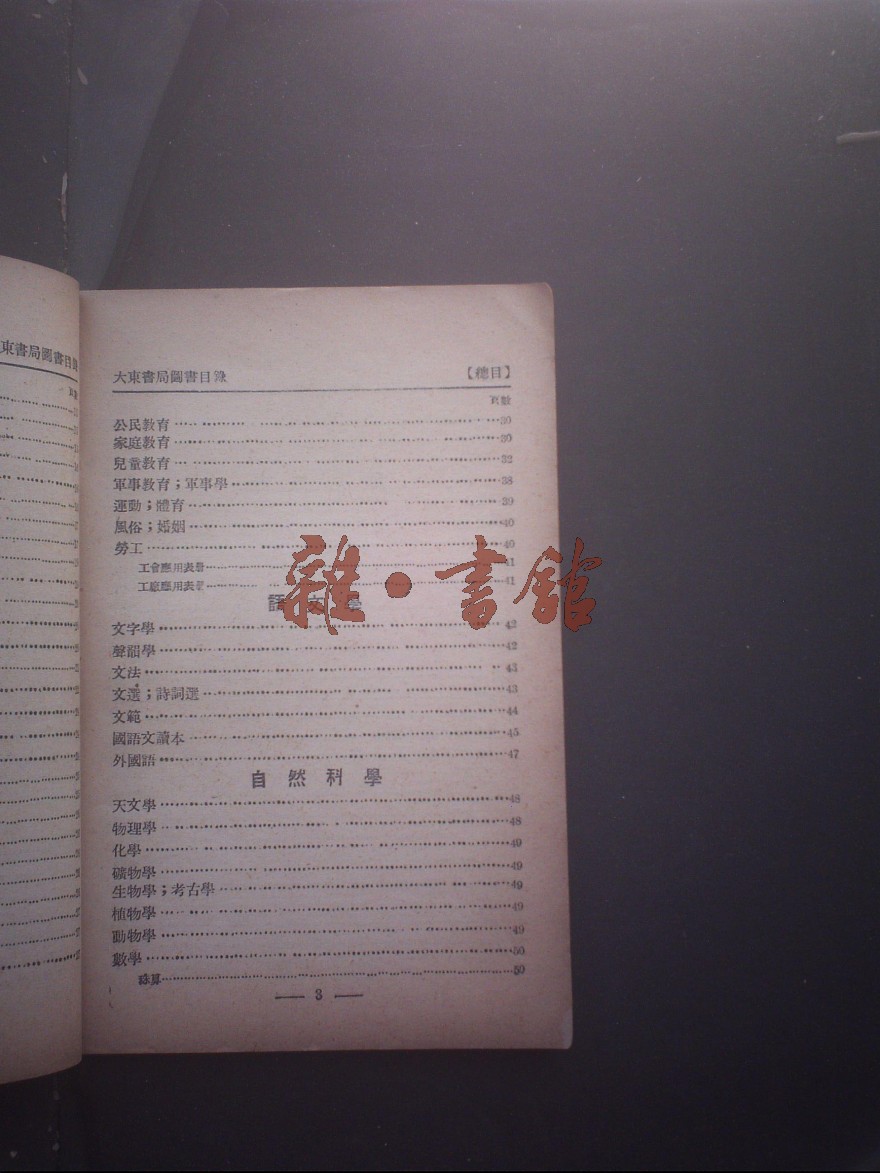 東書局圖書目錄
大東書局圖書目錄 【總目】
頁數
公民教育 30
家庭教育 30
兒童教育 32
軍事教育；軍事學 38
運動；體育 39
風俗；婚姻 40
勞工 40
工會應用表冊 41
工廠應用表冊 41
雜·書館
語文學
文字學 42
聲韻學 42
文法 43
文選；詩詞選 43
文範 44
國語文讀本 45
外國語 47
自然科學
天文學 48
物理學 48
化學 49
礦物學 49
生物學；考古學 49
植物學 49
動物學 49
數學 50
珠算 50
— 3 —